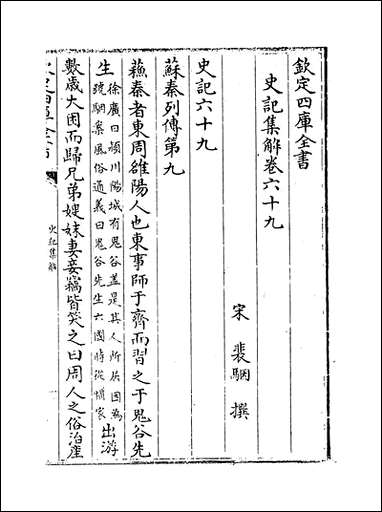 欽定四庫全書
史記集解卷六十九
宋 裴駰 撰
史記六十九
蘇秦列傳第九
蘇秦者東周雒陽人也東事師于齊而習之于鬼谷先
生
徐廣曰頴川陽城有鬼谷蓋是其人所居因為
號駰案風俗通義曰鬼谷先生六國時從横家
出游
數歲大困而歸兄弟嫂妹妻妾竊皆笑之曰周人之俗治產
史記集解